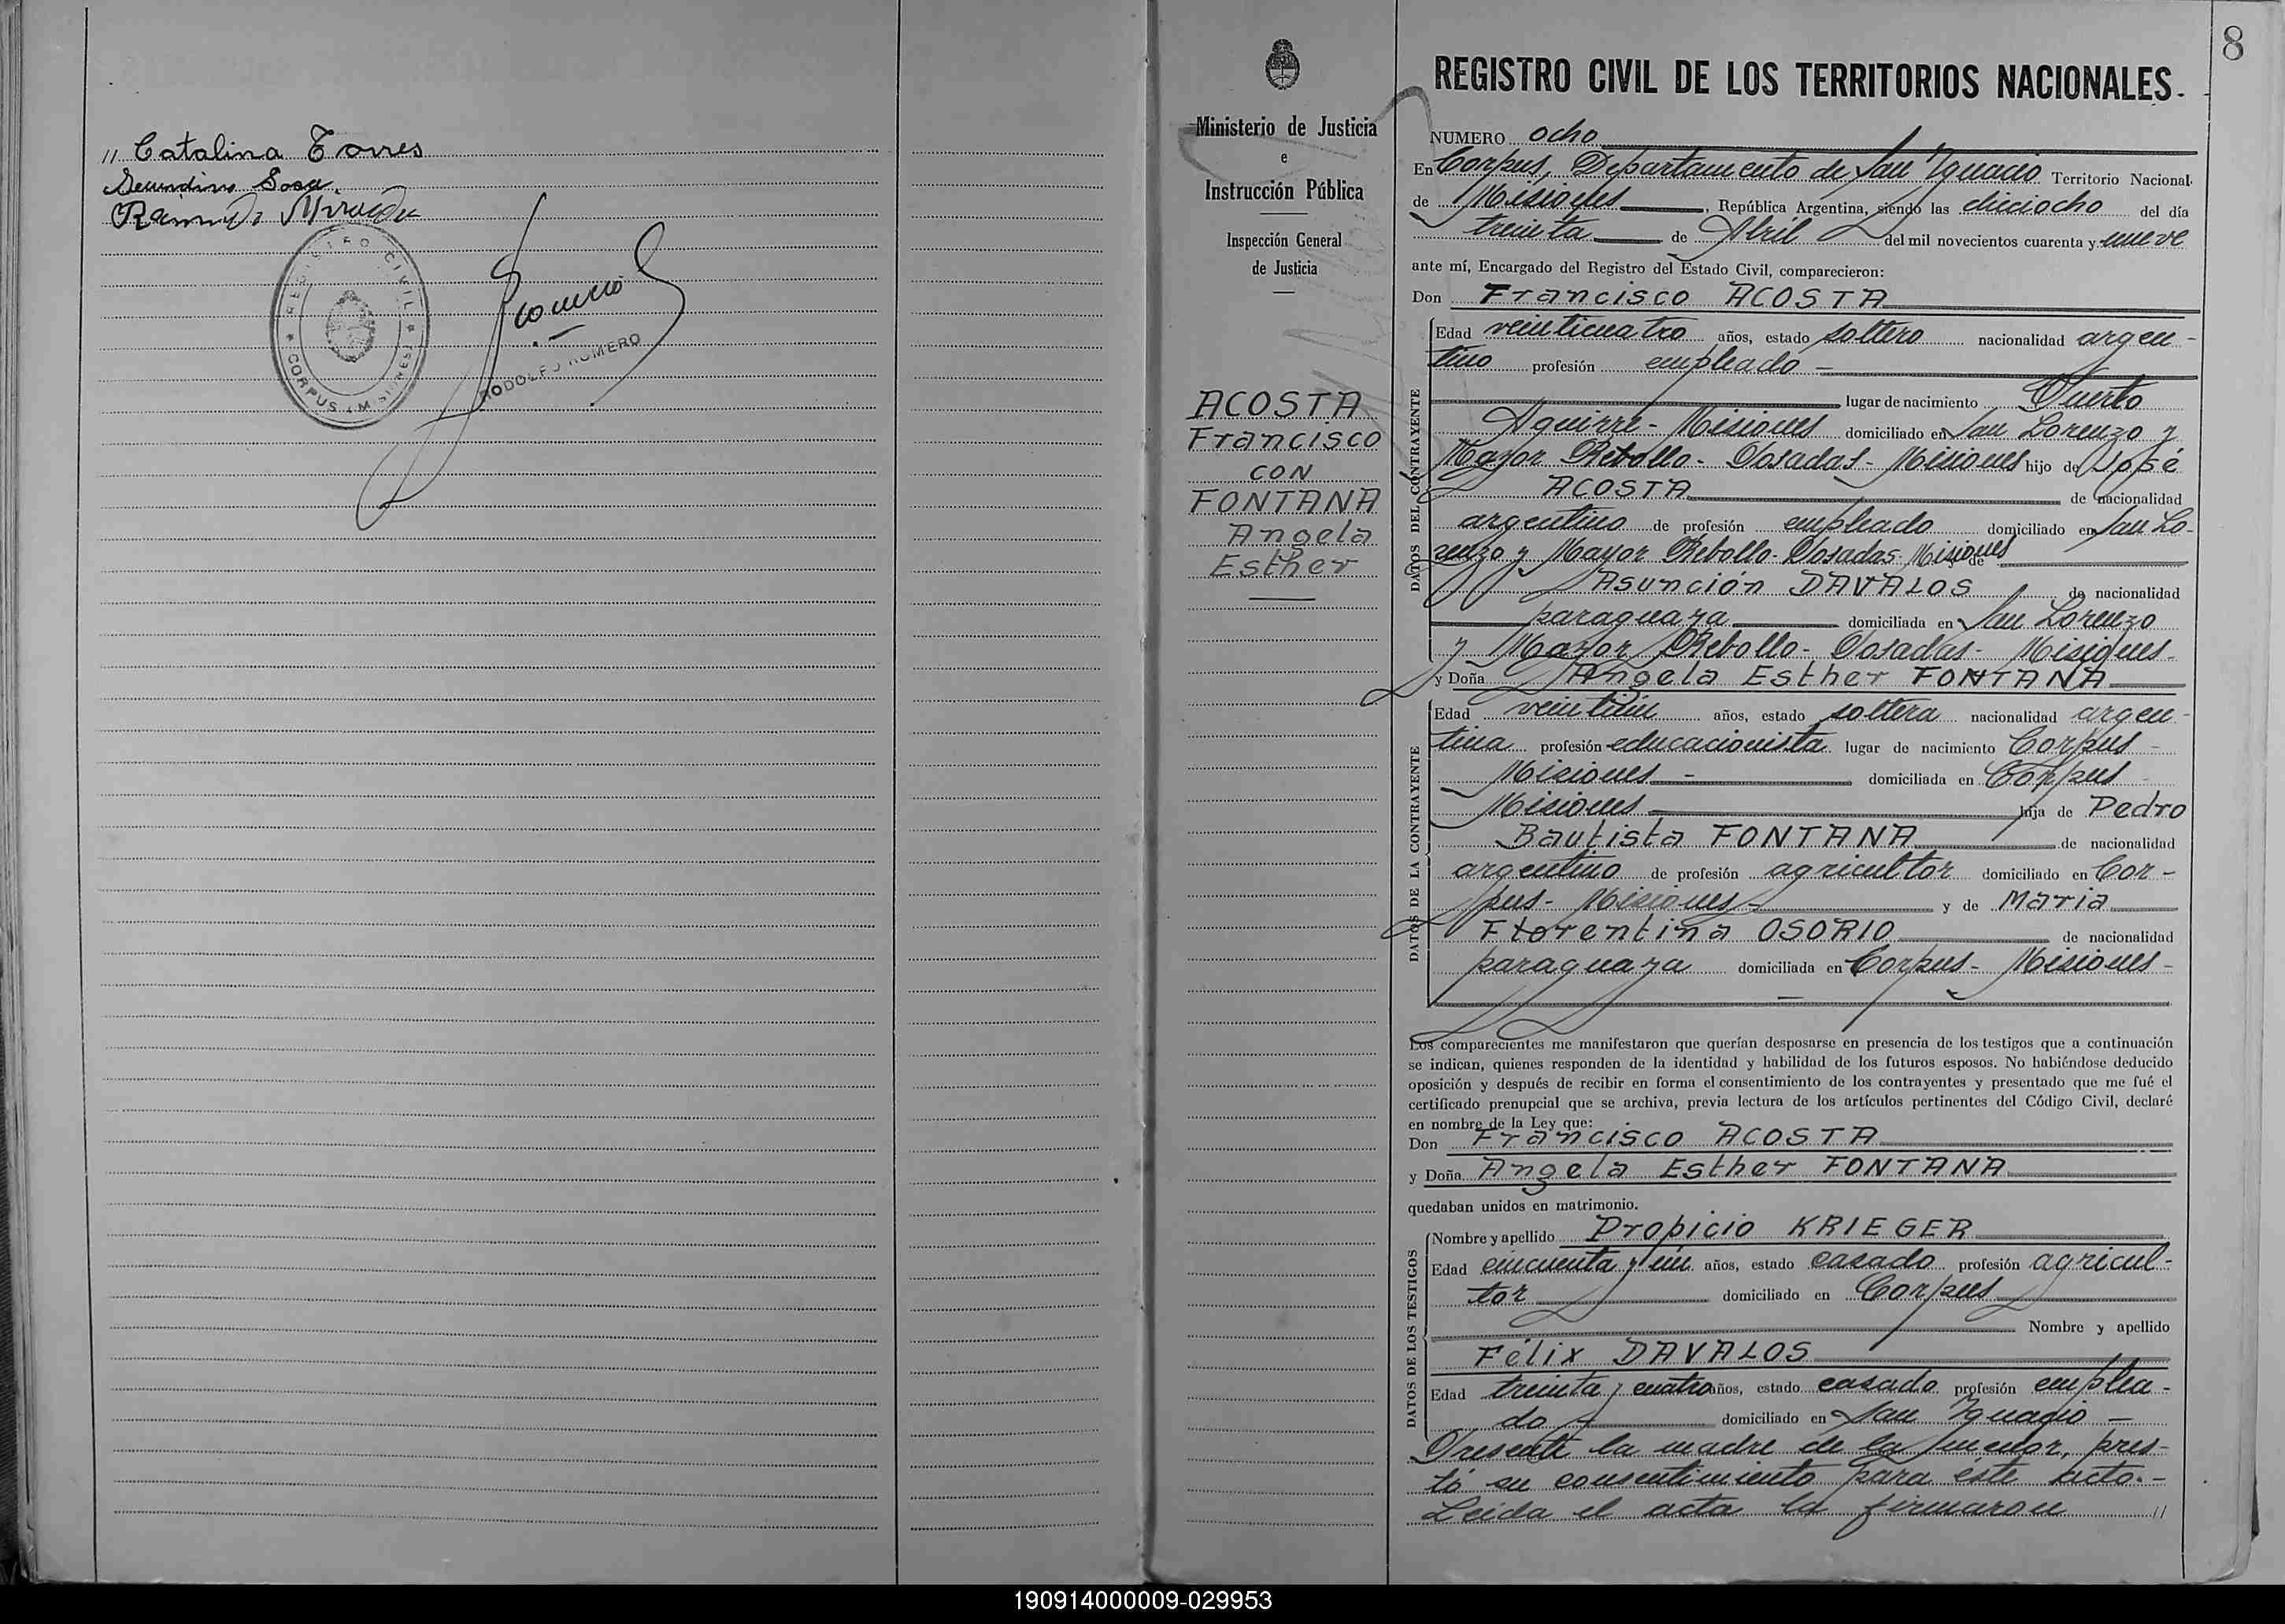 " Catalina Torres
Secundino Sosa.
REGISTRO CIVIL
CORPUS (MISIONES)
Romero
RODOLFO ROMERO
Ministerio de Justicia
e
Instrucción Pública
Inspección General
de Justicia
ACOSTA
Francisco
CON
FONTANA
Angela
Esther
8
REGISTRO CIVIL DE LOS TERRITORIOS NACIONALES.
NUMERO ocho
En Corpus, Departamento de San Ignacio Territorio Nacional
de Misiones, República Argentina, siendo las dieciocho del día
treinta de Abril del mil novecientos cuarenta y nueve
ante mí, Encargado del Registro del Estado Civil, comparecieron:
Don Francisco ACOSTA
DATOS DEL CONTRAYENTE
Edad veinticuatro años, estado soltero nacionalidad argen-
tino profesión empleado -
lugar de nacimiento Puerto
Aguirre - Misiones domiciliado en San Lorenzo y
Mayor Rebollo - Posadas - Misiones hijo de José
ACOSTA de nacionalidad
argentino de profesión empleado domiciliado en San Lo-
renzo y Mayor Rebollo - Posadas - Misiones y de
Asunción DAVALOS de nacionalidad
paraguaya domiciliada en San Lorenzo
y Mayor Rebollo - Posadas - Misiones -
y Doña Angela Esther FONTANA
DATOS DE LA CONTRAYENTE
Edad veintiún años, estado soltera nacionalidad argen-
tina profesión educacionista lugar de nacimiento Corpus -
Misiones - domiciliada en Corpus -
Misiones hija de Pedro
Bautista FONTANA de nacionalidad
argentino de profesión agricultor domiciliado en Cor-
pus - Misiones - y de Maria
Florentina OSORIO de nacionalidad
paraguaya domiciliada en Corpus - Misiones -
Los comparecientes me manifestaron que querían desposarse en presencia de los testigos que a continuación
se indican, quienes responden de la identidad y habilidad de los futuros esposos. No habiéndose deducido
oposición y después de recibir en forma el consentimiento de los contrayentes y presentado que me fué el
certificado prenupcial que se archiva, previa lectura de los artículos pertinentes del Código Civil, declaré
en nombre de la Ley que:
Don Francisco ACOSTA
y Doña Angela Esther FONTANA
quedaban unidos en matrimonio.
DATOS DE LOS TESTIGOS
Nombre y apellido Propicio KRIEGER
Edad cincuenta y un años, estado casado profesión agricul-
tor domiciliado en Corpus
Nombre y apellido
Félix DAVALOS
Edad treinta y cuatro años, estado casado profesión emplea-
do domiciliado en San Ignacio -
Presente la madre de la menor, pres-
tó su consentimiento para éste acto.-
Leida el acta la firmaron "
190914000009-029953